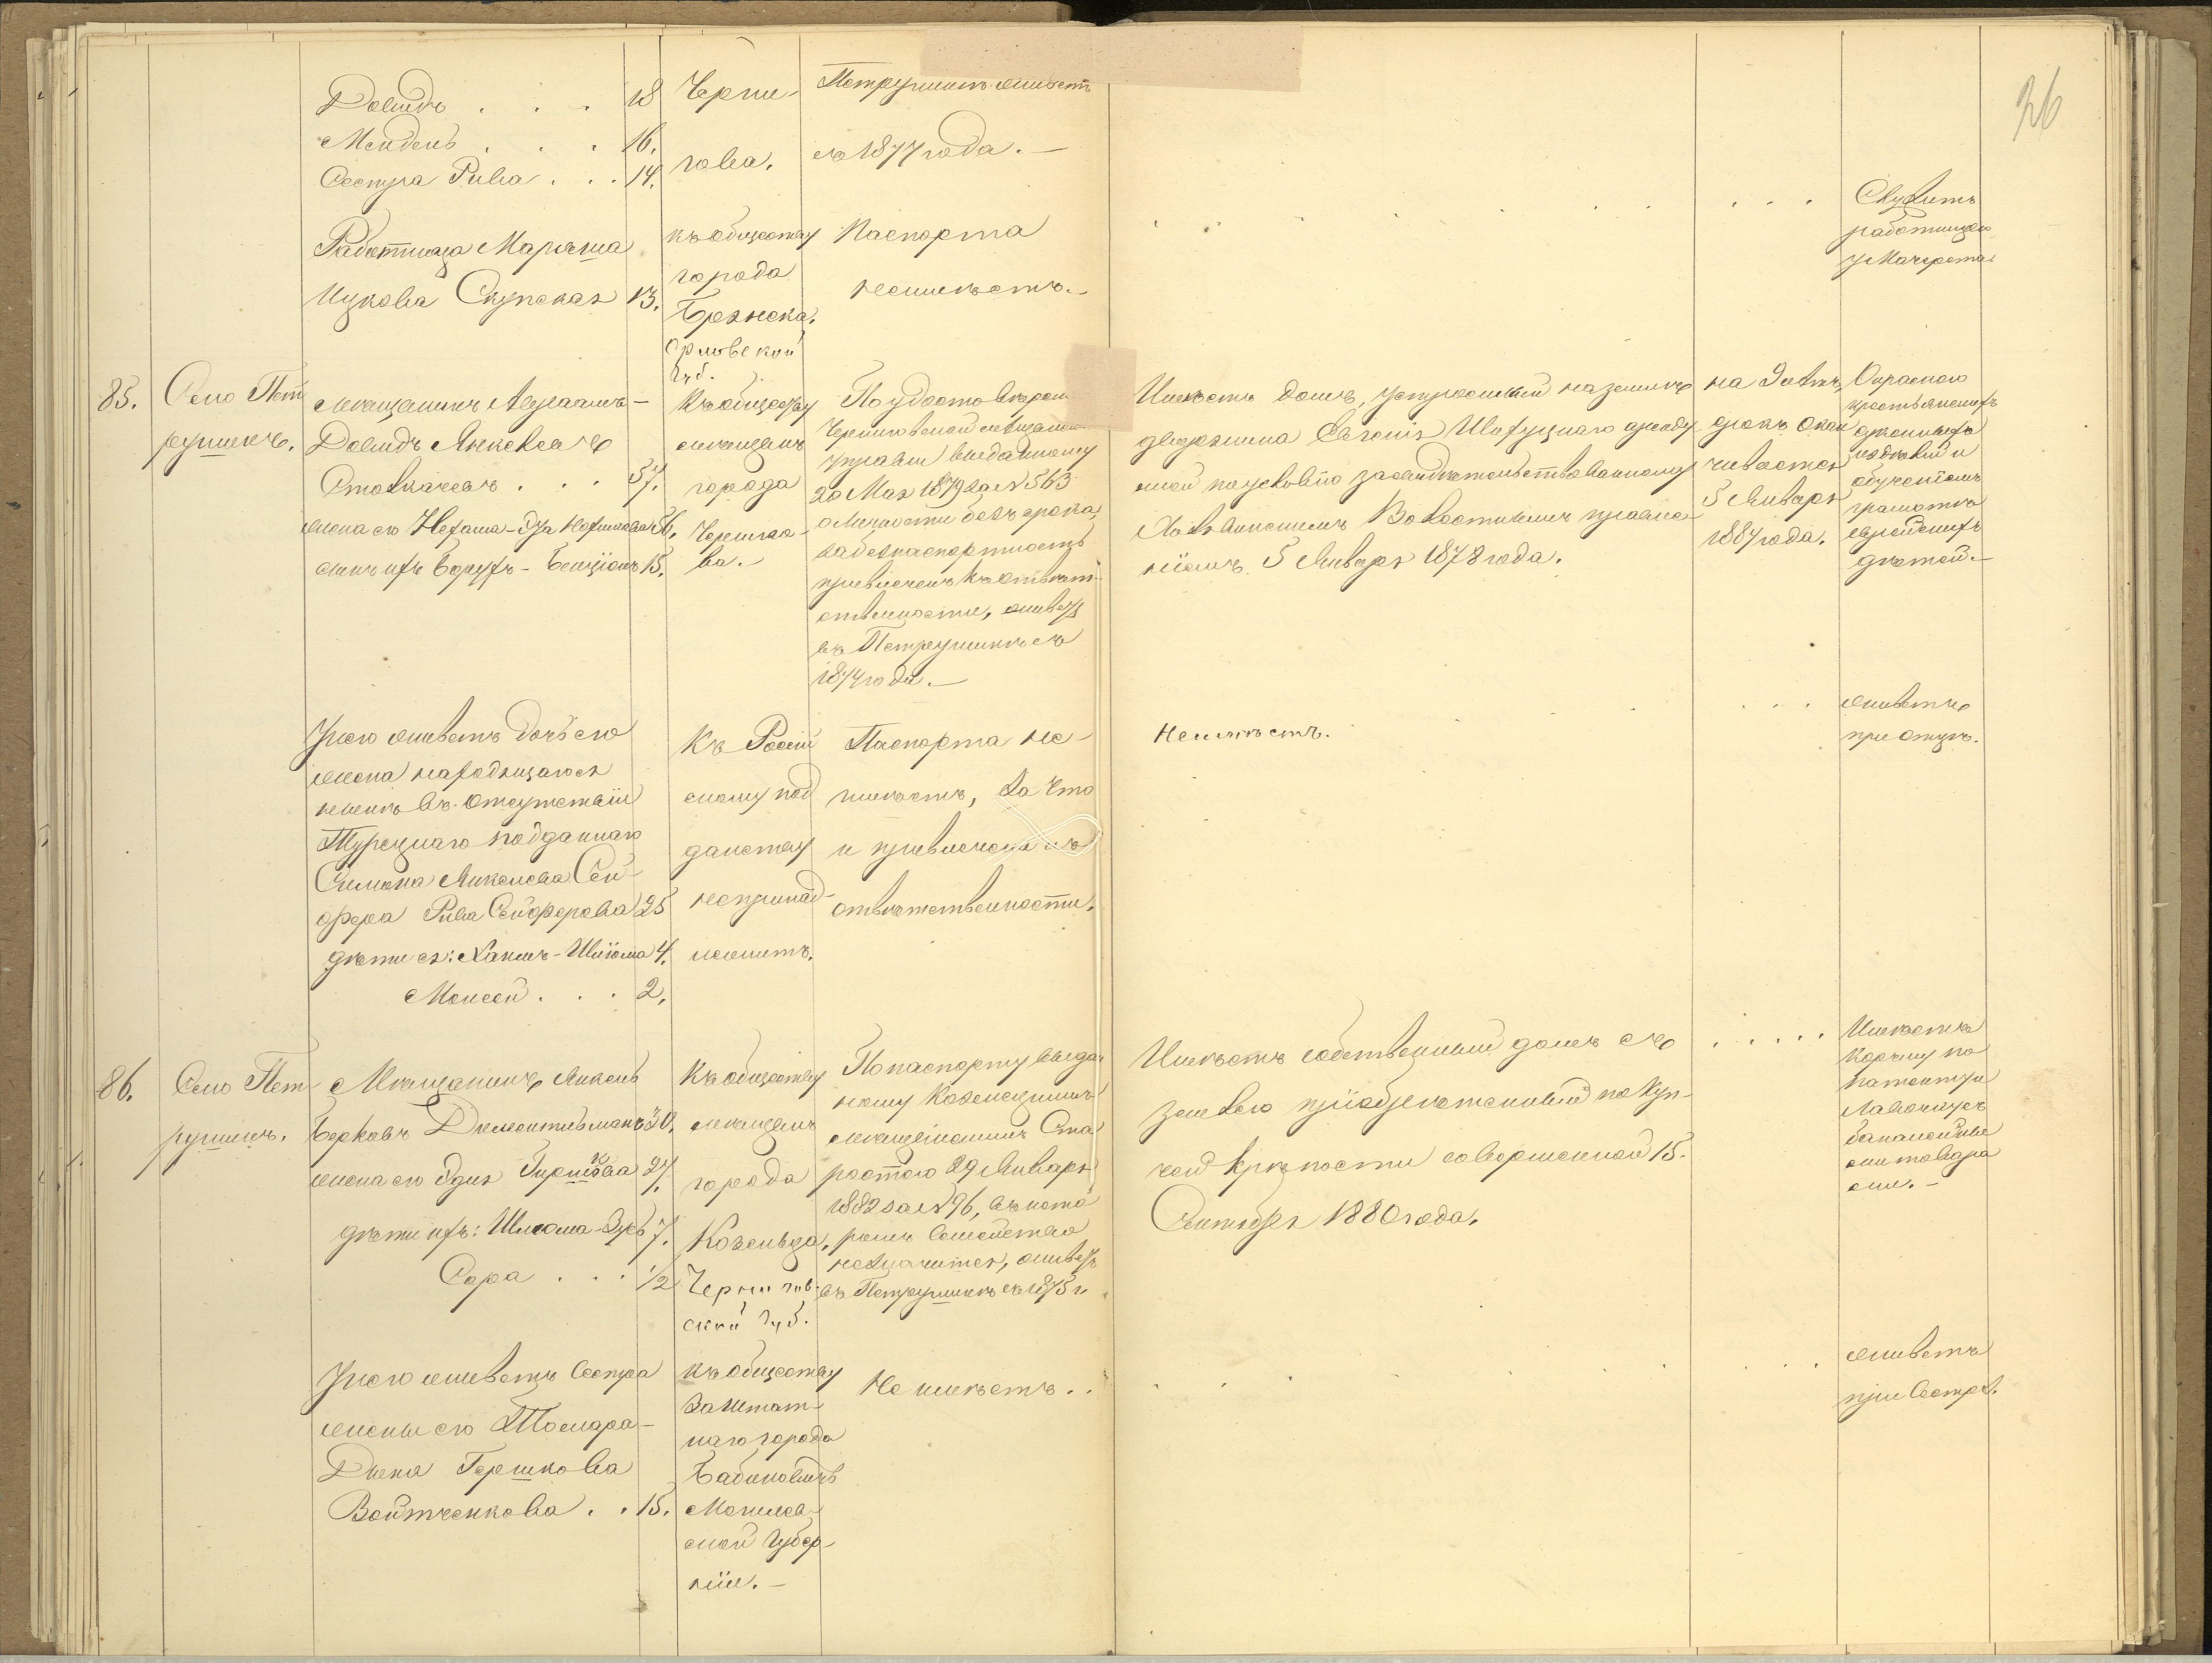 26
Довидъ . . . 18
Мендель . . . 16.
Сестра Рива . . . 14.
Черни-
гова.
Петрушинъ живетъ
съ 1877 года. —
Работница Марьяша
Ицкова Скупская 13.
Къ обществу
города
Брянска.
Орловской
Губ.
Паспорта
неимѣетъ. —
Служитъ
работницею
85.
Село Пет
рушинъ.
мещанинъ Абрамъ-
Довидъ Янкелевъ
. . . 57.
жена его 56.
сынъ ихъ Борухъ- 15.
Къ обществу
мещанъ
города
Чернiго-
ва. —
По удостовѣрен
Черниговской мещанск
управы выданному
20 Мая 1879 за № 563
о личности безъ срока,
за безпаспортность
привлеченъ къ отвѣт-
ственности, живетъ
въ Петрушинѣ съ
1874 года. —
Имѣетъ домъ, устроенный на землѣ
дворянина Евгенiя аренду
емой по условiю засвидѣтельствованному
Волостнымъ правле-
нiемъ 5 Января 1878 года.
на 9 лѣтъ,
срокъ окан
чивается
5 Января
1887 года.
Окраскою
крестьянскихъ
издѣлiй и
обученiемъ
грамотѣ
еврейскихъ
дѣтей. —
У него живетъ дочь его
жена находящагося
нынѣ въ отсутствiи
Турецкаго подданнаго
Симона Янкелева Сей-
фера Рива Сейферова 25
дѣти ея: Хаимъ-Шлiома 4.
Моисей . . . 2.
Къ Россiй
скому под
данству
непринад-
лежитъ.
Паспорта не-
имѣетъ, за что
и привлечена къ
отвѣтственности.
Неимѣетъ.
живетъ
при отцѣ.
86.
Село Пет
рушинъ.
Мещанинъ Янкель
Берковъ 30.
жена его Гершкова 27.
дѣти ихъ: Шлiома- 7.
Сара . . . ½
Къ обществу
мещанъ
города
Козельца,
Чернигов-
ской Губ.
По паспорту выдан
ному Козелецкимъ
мещанскимъ Ста
ростою 29 Января
1882 за № 96, въ кото
ромъ семейство
незначится, живетъ
въ Петрушинѣ съ 1875 г.
Имѣетъ собственный домъ съ
землею прiобрѣтенный по куп-
чей крѣпости совершенной 15.
Сентября 1880 года.
Имѣетъ
корчму по
патенту и
Лавочку съ
бакалейны
ми товара
ми. —
У него живетъ сестра
жены его Тамара-
Гершкова
Войтченкова . . 15.
Къ обществу
заштат-
наго города
Бабиновичъ
Могилев-
ской Губер-
нiи. —
Не имѣетъ. .
живетъ
при сестрѣ.